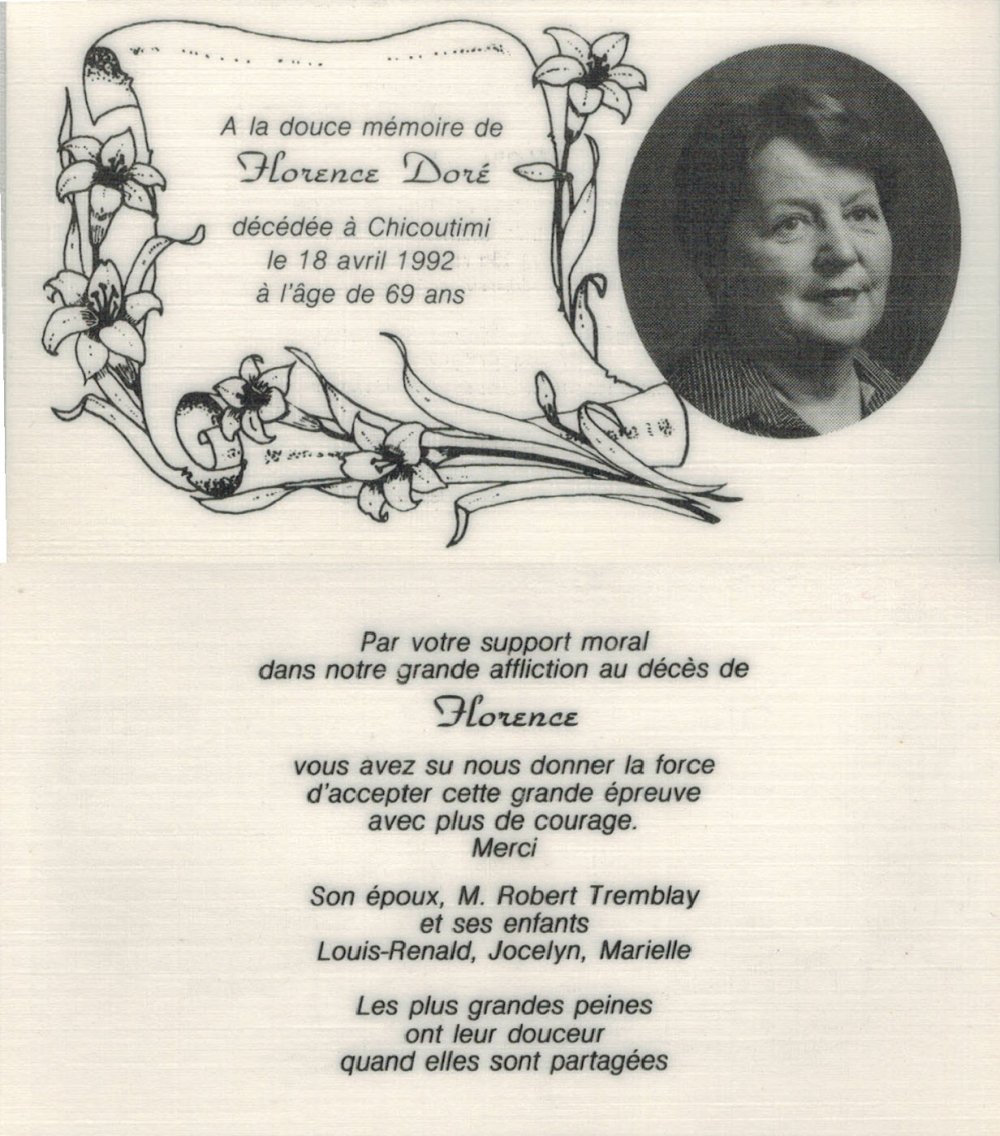 A la douce mémoire de
Florence Doré
décédée à Chicoutimi
le 18 avril 1992
à l'âge de 69 ans
Par votre support moral
dans notre grande affliction au décès de
Florence
vous avez su nous donner la force
d'accepter cette grande épreuve
avec plus de courage.
Merci
Son époux, M. Robert Tremblay
et ses enfants
Louis-Renald, Jocelyn, Marielle
Les plus grandes peines
ont leur douceur
quand elles sont partagées